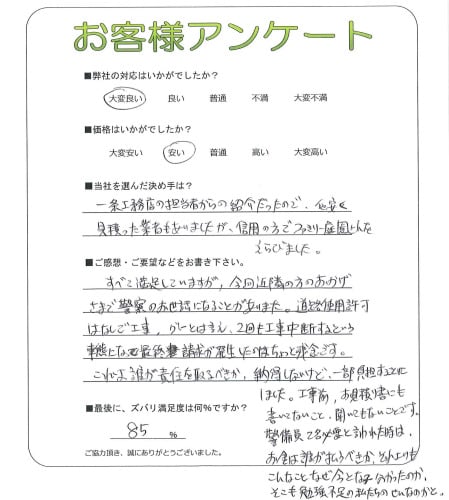 お客様アンケート
■弊社の対応はいかがでしたか?
大変良い 良い 普通 不満 大変不満
■価格はいかがでしたか?
大変安い 安い 普通 高い 大変高い
■当社を選んだ決め手は?
一条工務店の担当者からの紹介だったので、
見積った業者もありましたが、信用の方でファミリー庭園さんを
えらびました。
■ご感想・ご要望などをお書き下さい。
すべて満足していますが、今回近隣の方のおかげ
さまで警察のお世話になることがありました。道路使用許可
はなしで工事、グレーとはいえ、2回も工事中断するという
事態になって最終請求が発生したのはちょっと残念です。
これは誰が責任を取るべきか、納得しないけど、一部負担することに
しました。工事前、お見積り書にも
書いてないこと、聞いてもないことです。
警備員で必要と言われた時は、
お金は誰が払うべきか、それよりも
こんなことなぜ今となって分かったのか、
そこも勉強不足の私たちのせいなのかと。
■最後に、ズバリ満足度は何%ですか?
85 %
ご協力頂き、誠にありがとうございました。